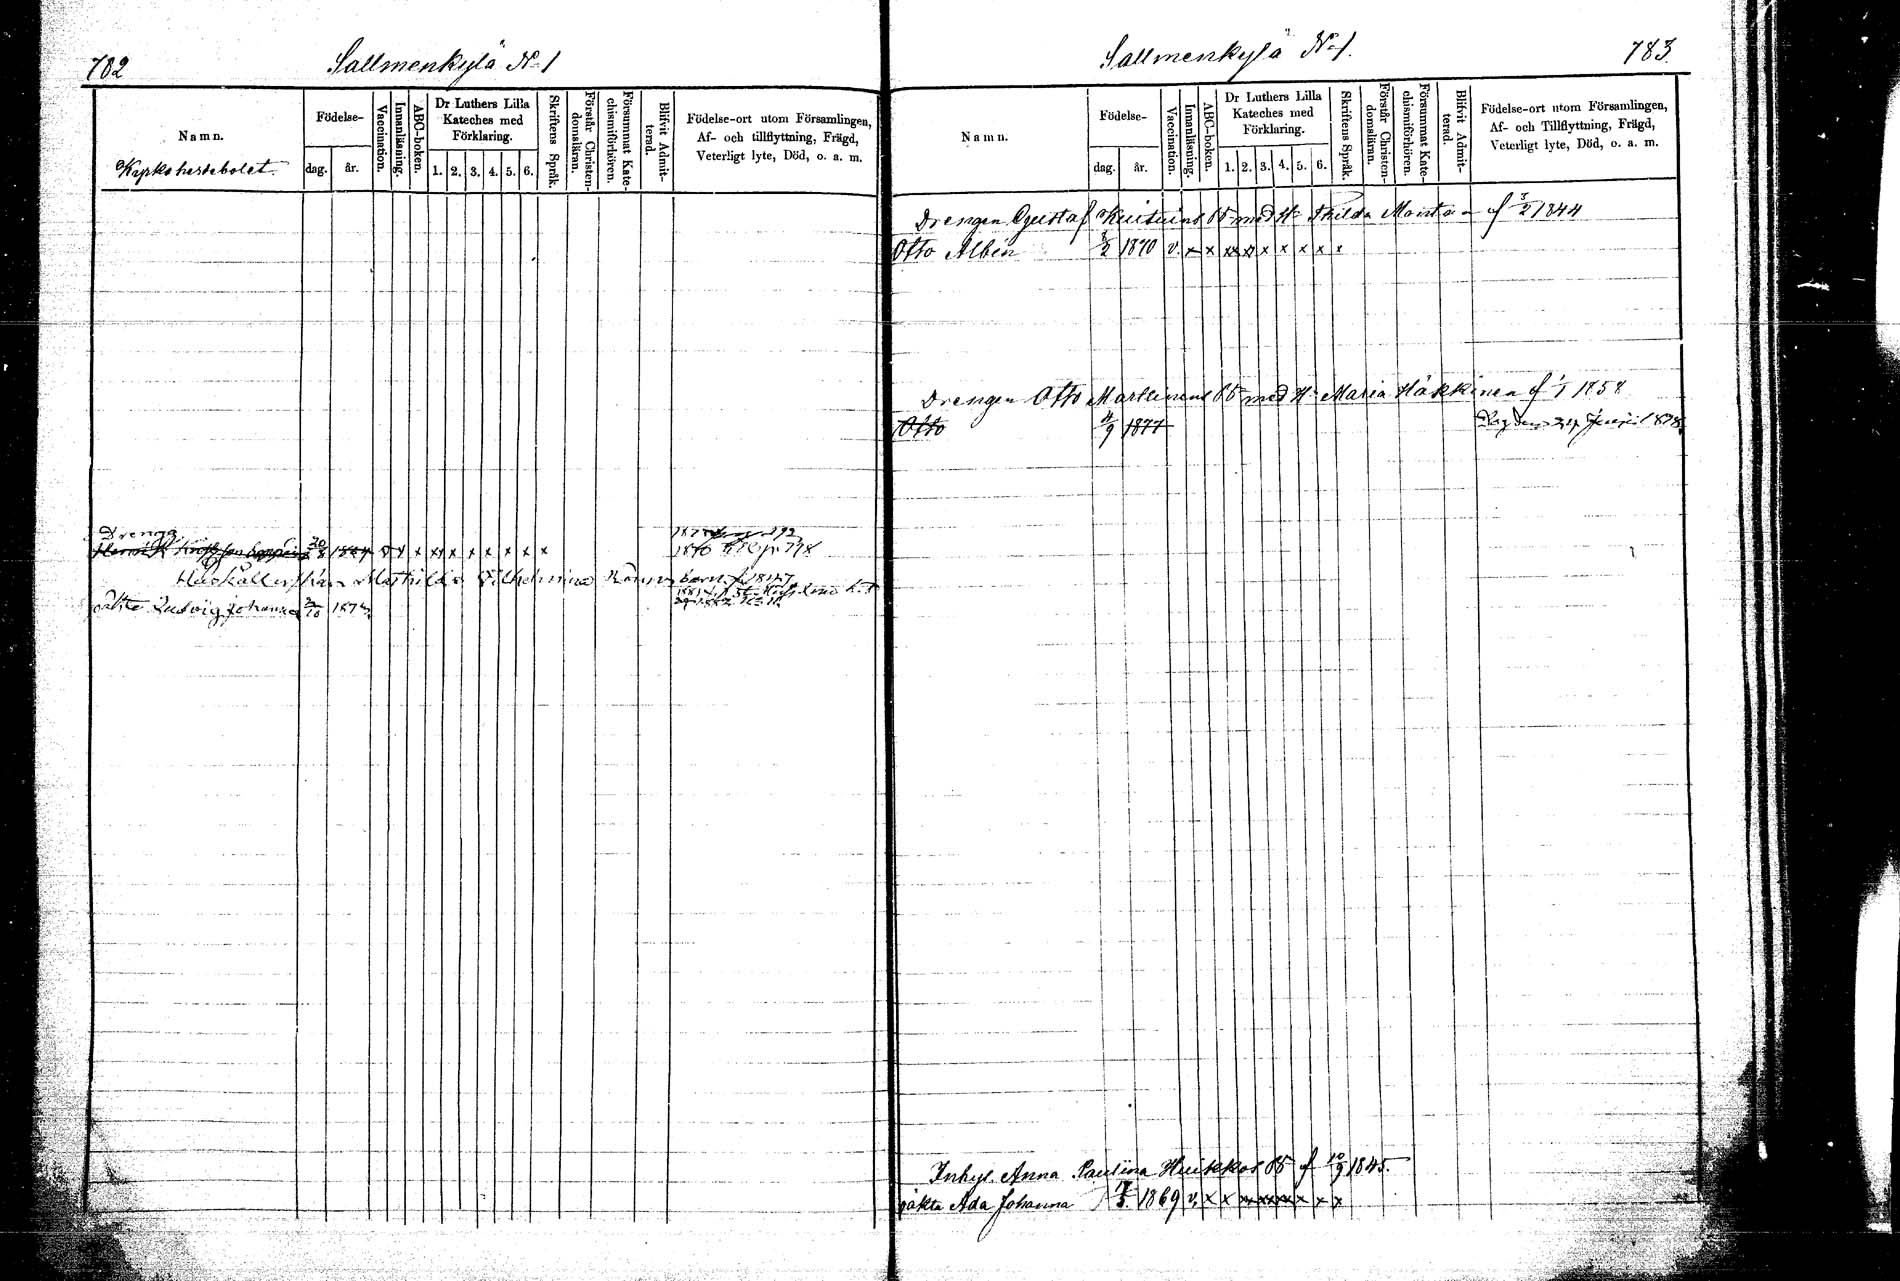 782
Sallmenkylä No 1
Namn.
Kyrkoherdebolet.
Födelse-
dag.
år.
Vaccination.
Innanläsning.
ABC-boken.
Dr Luthers Lilla
Kateches med
Förklaring.
1. 2. 3. 4. 5. 6.
Skriftens Språk.
Förstår Christen-
domsläran.
Försummat Kate-
chismiförhören.
Blifvit Admit-
terad.
Födelse-ort utom Församlingen,
Af- och tillflyttning, Frägd,
Veterligt lyte, Död, o. a. m.
Dreng
20/8 1864 v x x x x x x x x x
Mathilda Vilhelmina barn f 1847
oäkta Ludvig Johannes 2/10 1873
Sallmenkylä No 1.
783.
Namn.
Födelse-
dag.
år.
Vaccination.
Innanläsning.
ABC-boken.
Dr Luthers Lilla
Kateches med
Förklaring.
1. 2. 3. 4. 5. 6.
Skriftens Språk.
Förstår Christen-
domsläran.
Försummat Kate-
chismiförhören.
Blifvit Admit-
terad.
Födelse-ort utom Församlingen,
Af- och Tillflyttning, Frägd,
Veterligt lyte, Död, o. a. m.
Drengen Gustaf med H: Thilda f 3/2 1844
Otto Albin 3/2 1870 v. x x xx x x x x x x
Drengen Otto Marttinens med H: Maria Häkkinen f 1/1 1858
Otto 11/9 1877 24 Junii 1878.
Inhys. Anna Paulina Huikkos f 10/9 1845.
oäkta Ada Johanna 17/5. 1869 v. x x x x x x x x x